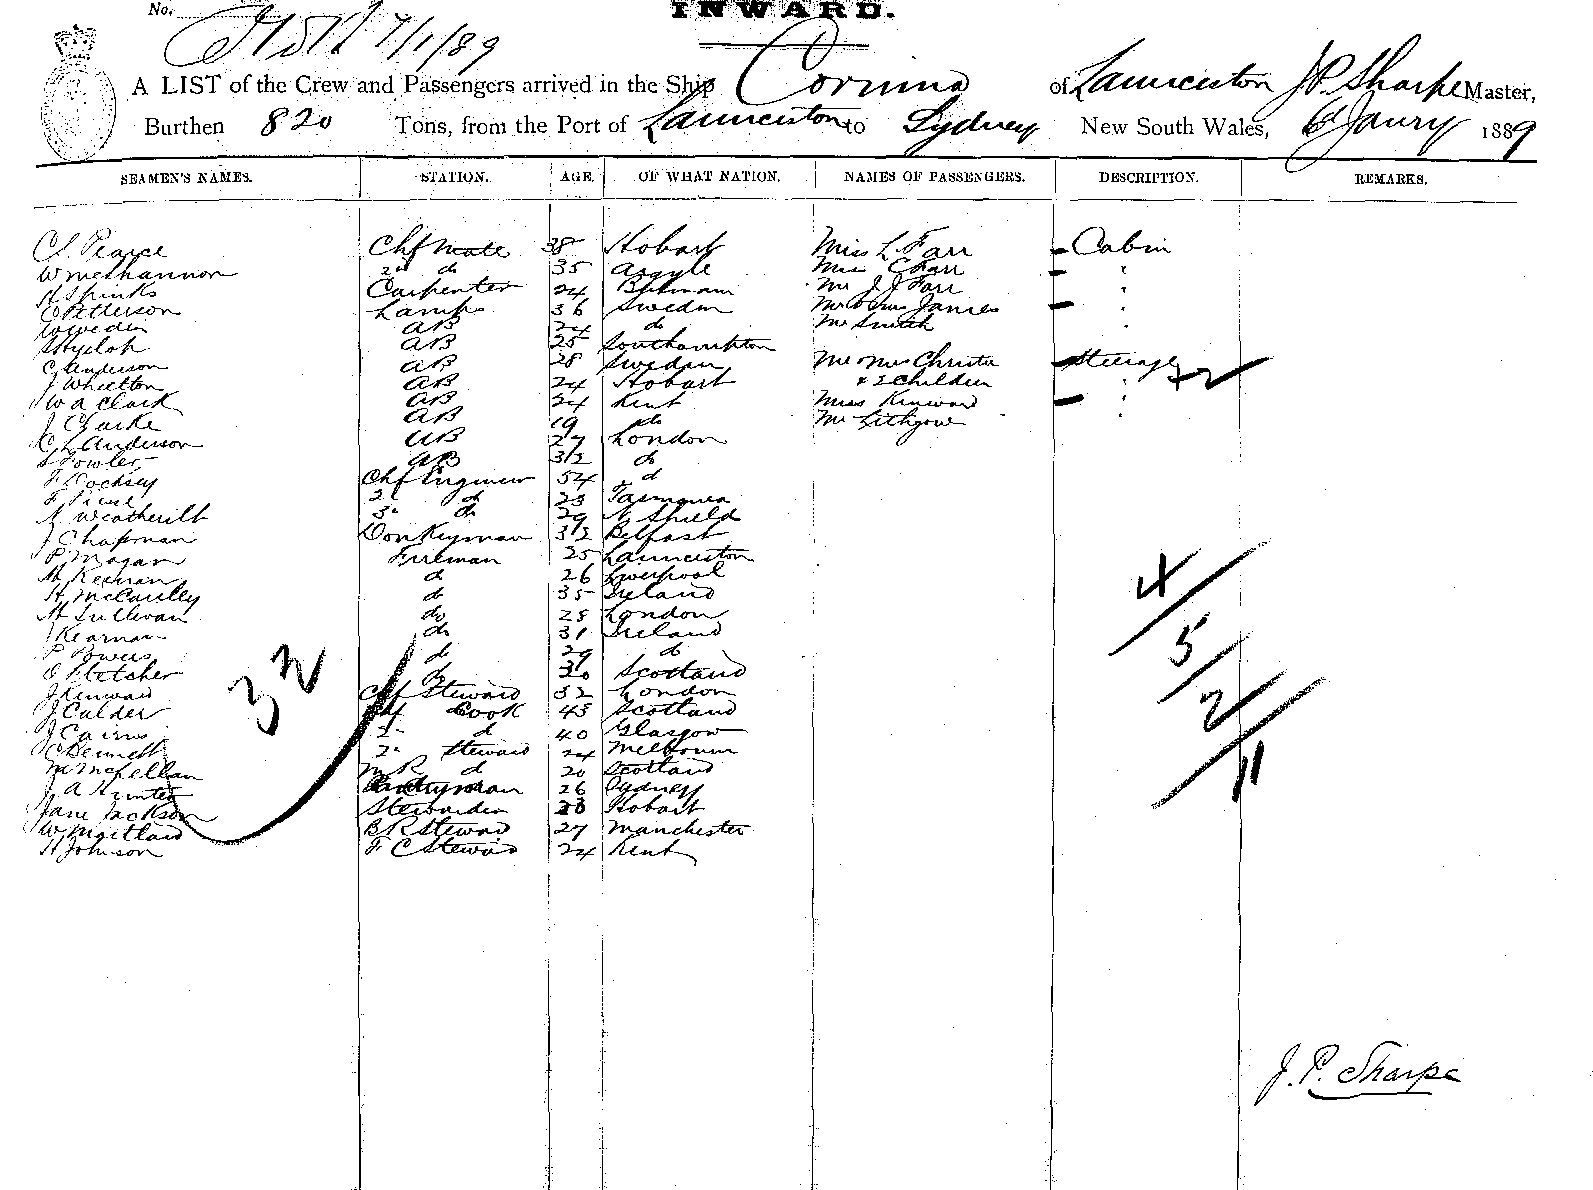 No.
INWARD.
7/1/89
A LIST of the Crew and Passengers arrived in the Ship Corinna of Launceston J.P. Sharpe Master,
Burthen 820 Tons, from the Port of Launceston to Sydney New South Wales, 6 Janry 1889
SEAMEN'S NAMES. STATION. AGE. OF WHAT NATION. NAMES OF PASSENGERS. DESCRIPTION. REMARKS.
Pearce Chf Mate 38 Hobart Miss L Farr Cabin
W McShannon 2d do 35 Argyle Miss C Farr "
H Spinks Carpenter 24 Mr J J Farr "
C Petterson Lamps 36 Sweden Mr & Mrs James "
AB 24 do Mr Smith "
AB 25 Southampton
C Anderson AB 28 Sweden Mr Mrs Christie Steerage
J Wheelton AB 24 Hobart & 2 Children "
W A Clark AB 24 Kent Miss Kinward "
J Clarke AB 19 do Mr Lithgow "
C L Anderson AB 27 London
S Fowler AB 32 do
F Cocksey Chf Engineer 54 d
2d do 23 Tasmania
Weatherilt 3d do 29 N Shield
J Chapman Donkeyman 32 Belfast
P Magan Fireman 25 Launceston
M Keenan d 26 Liverpool
H McCauley do 35 Ireland
M Sullivan do 28 London
J Kearnan do 31 Ireland
P Bowers do 29 do
O Fletcher do 30 Scotland
J Kinward Chf Steward 32 London
J Calder Chf Cook 43 Scotland
J Cairns 2 d 40 Glasgow
C Bennett 2d Steward 24 Melbourn
M McLellan d 20 Scotland
J A Hunter Pantryman 26 Sydney
Jane Jackson Stewardess 28 Hobart
W Maitland B R Steward 27 Manchester
H Johnson F C Steward 24 Kent
32
4
5
2
11
J. P. Sharpe